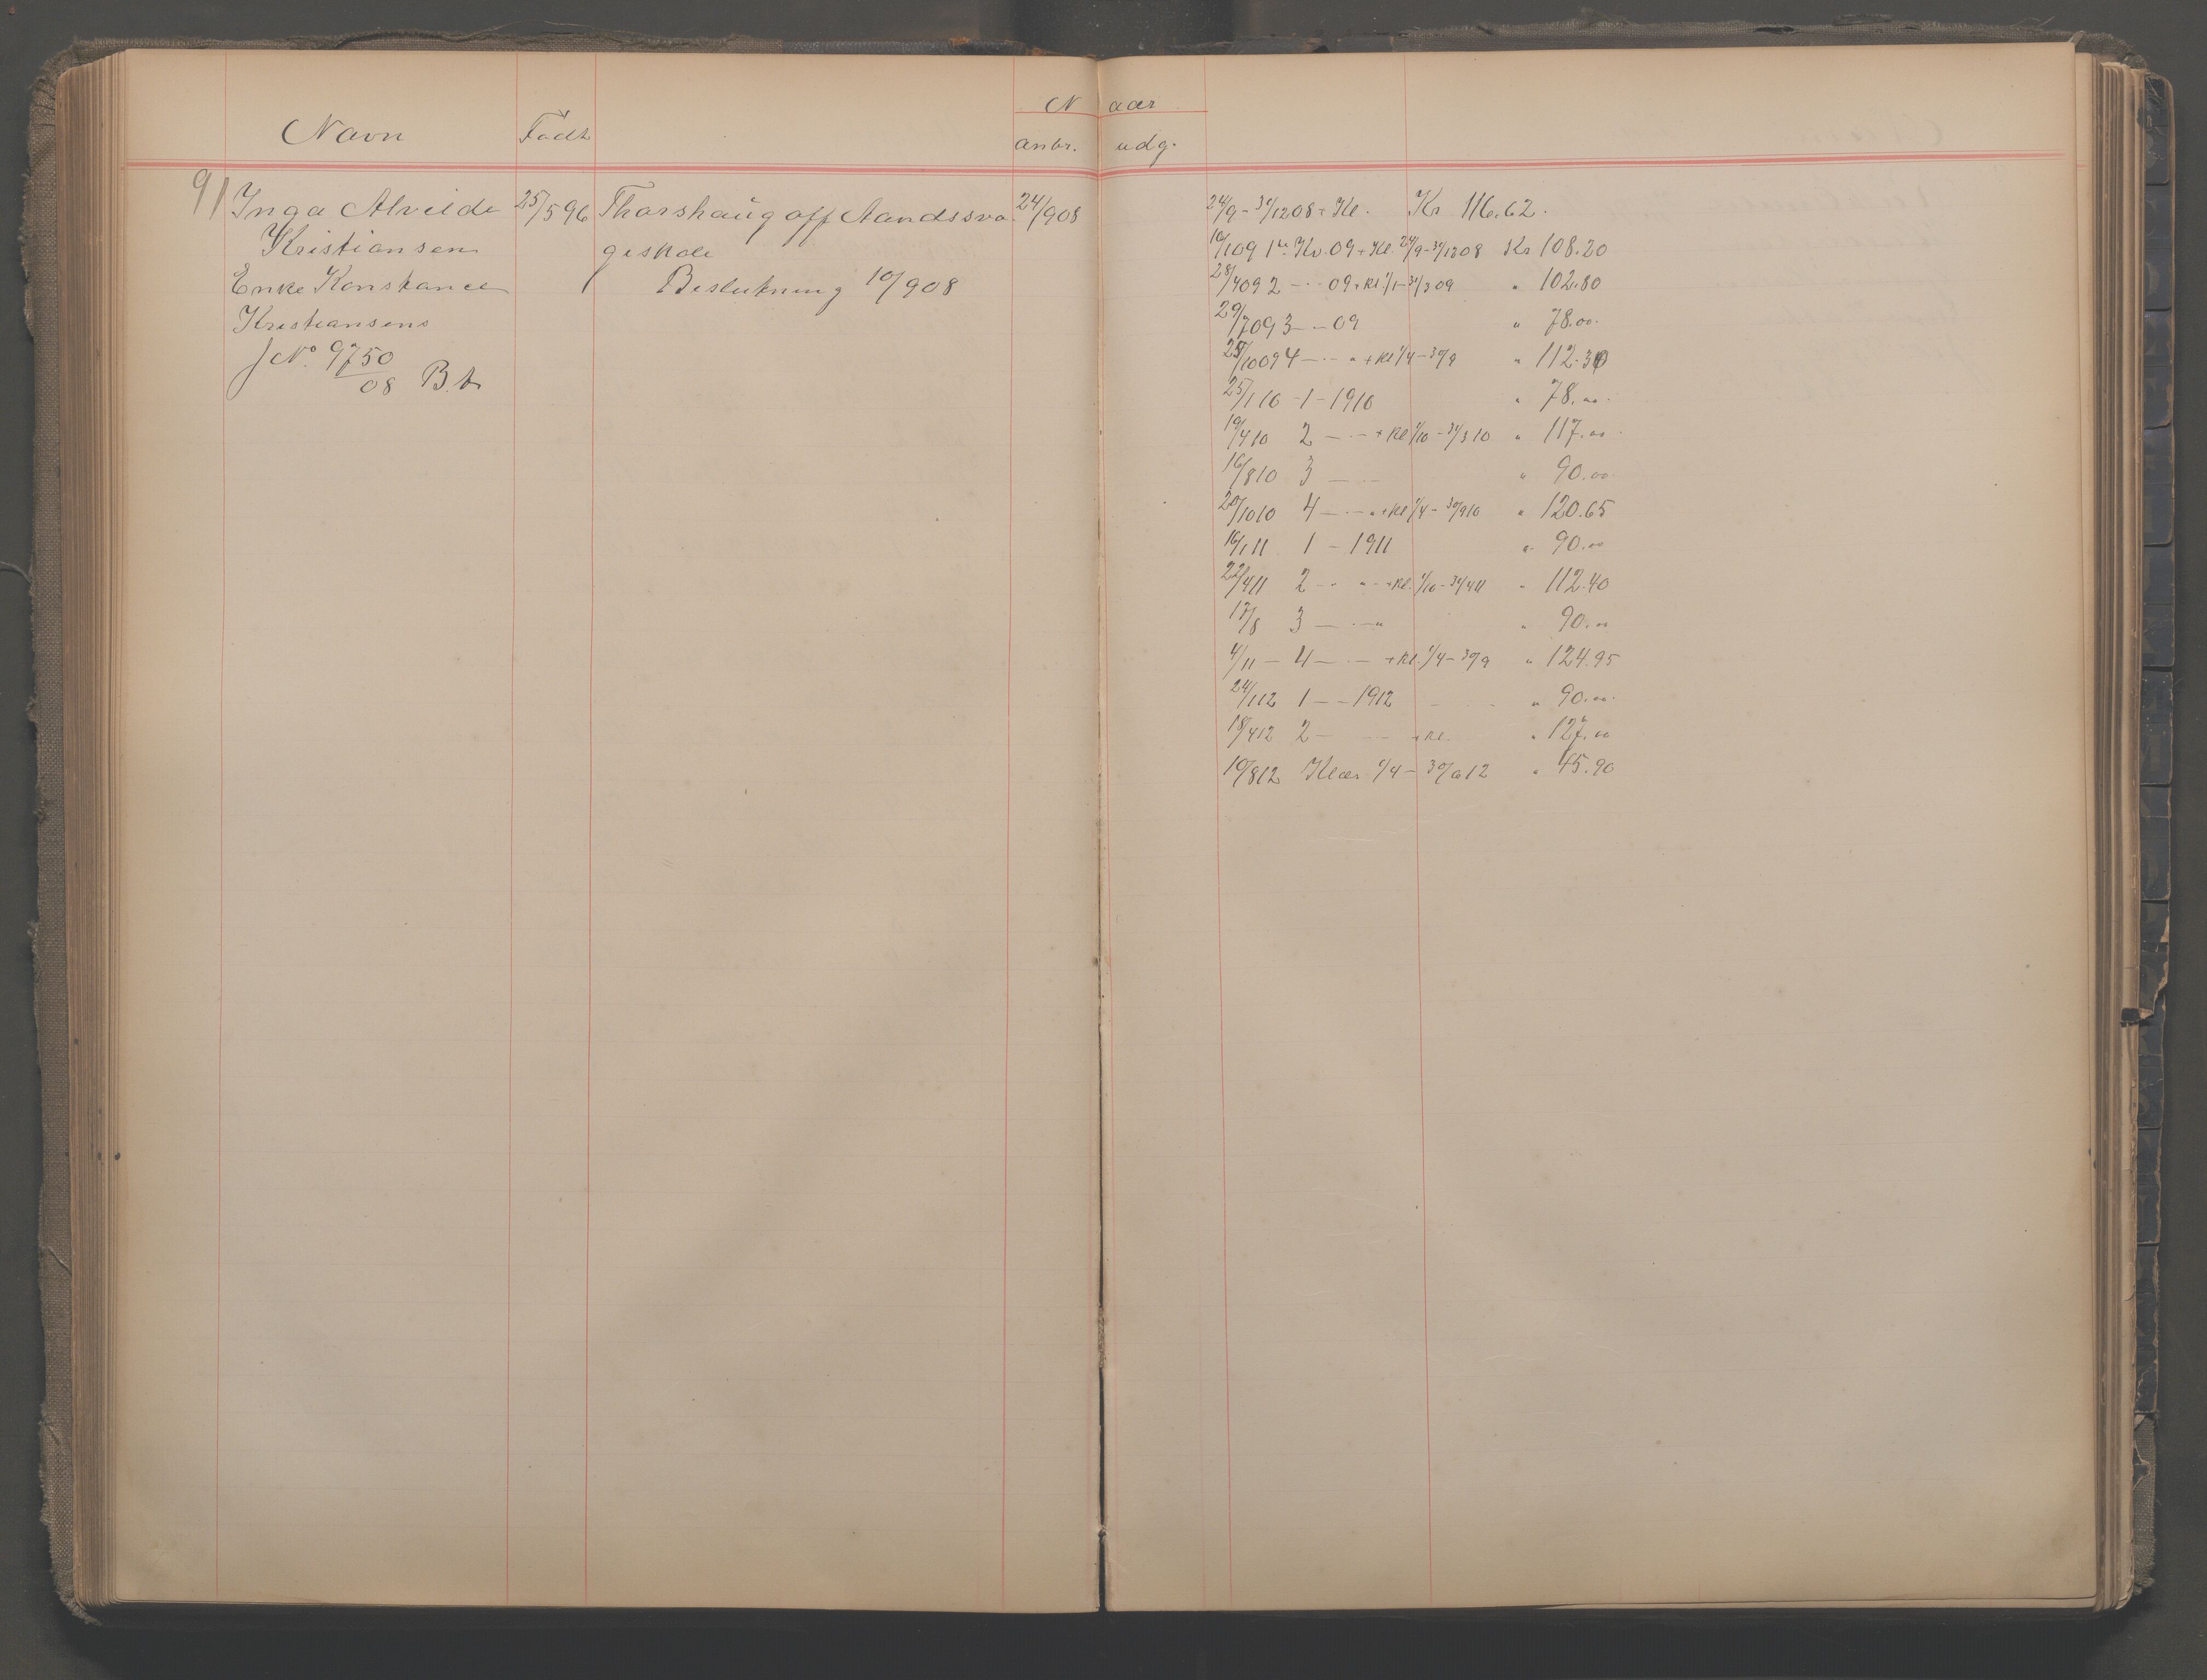 Naar
Navn Født anbr. udg.
91 Inga Alvilde 25/5 96 Thorshaug off Aandssva 24/9 08
Kristiansen geskole
Enke Konstance Beslutning 10/9 08
Kristiansens
J No. 9750/08 B.b.
24/9 - 31/12 08 + Kl. Kr 116.62.
16/1 09 1ste Kv. 09 + Kl. 24/9 - 31/12 08 Kr 108.20
28/4 09 2 — " — 09 + Kl 1/1 - 31/3 09 " 102.80
29/7 09 3 — " — 09 " 78.00.
25/10 09 4 — " — " + Kl 1/4 - 30/9 " 112.30
25/1 10 - 1 - 1910 " 78.00.
19/4 10 2 — " — + Kl 1/10 - 31/3 10 " 117.00.
16/8 10 3 — " — " 90.00.
20/10 10 4 — " — " + Kl 1/4 - 30/9 10 " 120.65
16/1 11 1 - 1911 " 90.00
22/4 11 2 - " - " - + Kl. 1/10 - 31/4 11 " 112.40
17/8 3 — " — " " 90.00
4/11 - 4 — " — + Kl. 1/4 - 30/9 " 124.95
24/1 12 1 — — 1912 " 90.00.
18/4 12 2 — " — + Kl. " 127.00
10/8 12 Klær 1/4 - 30/6 12 " 45.90